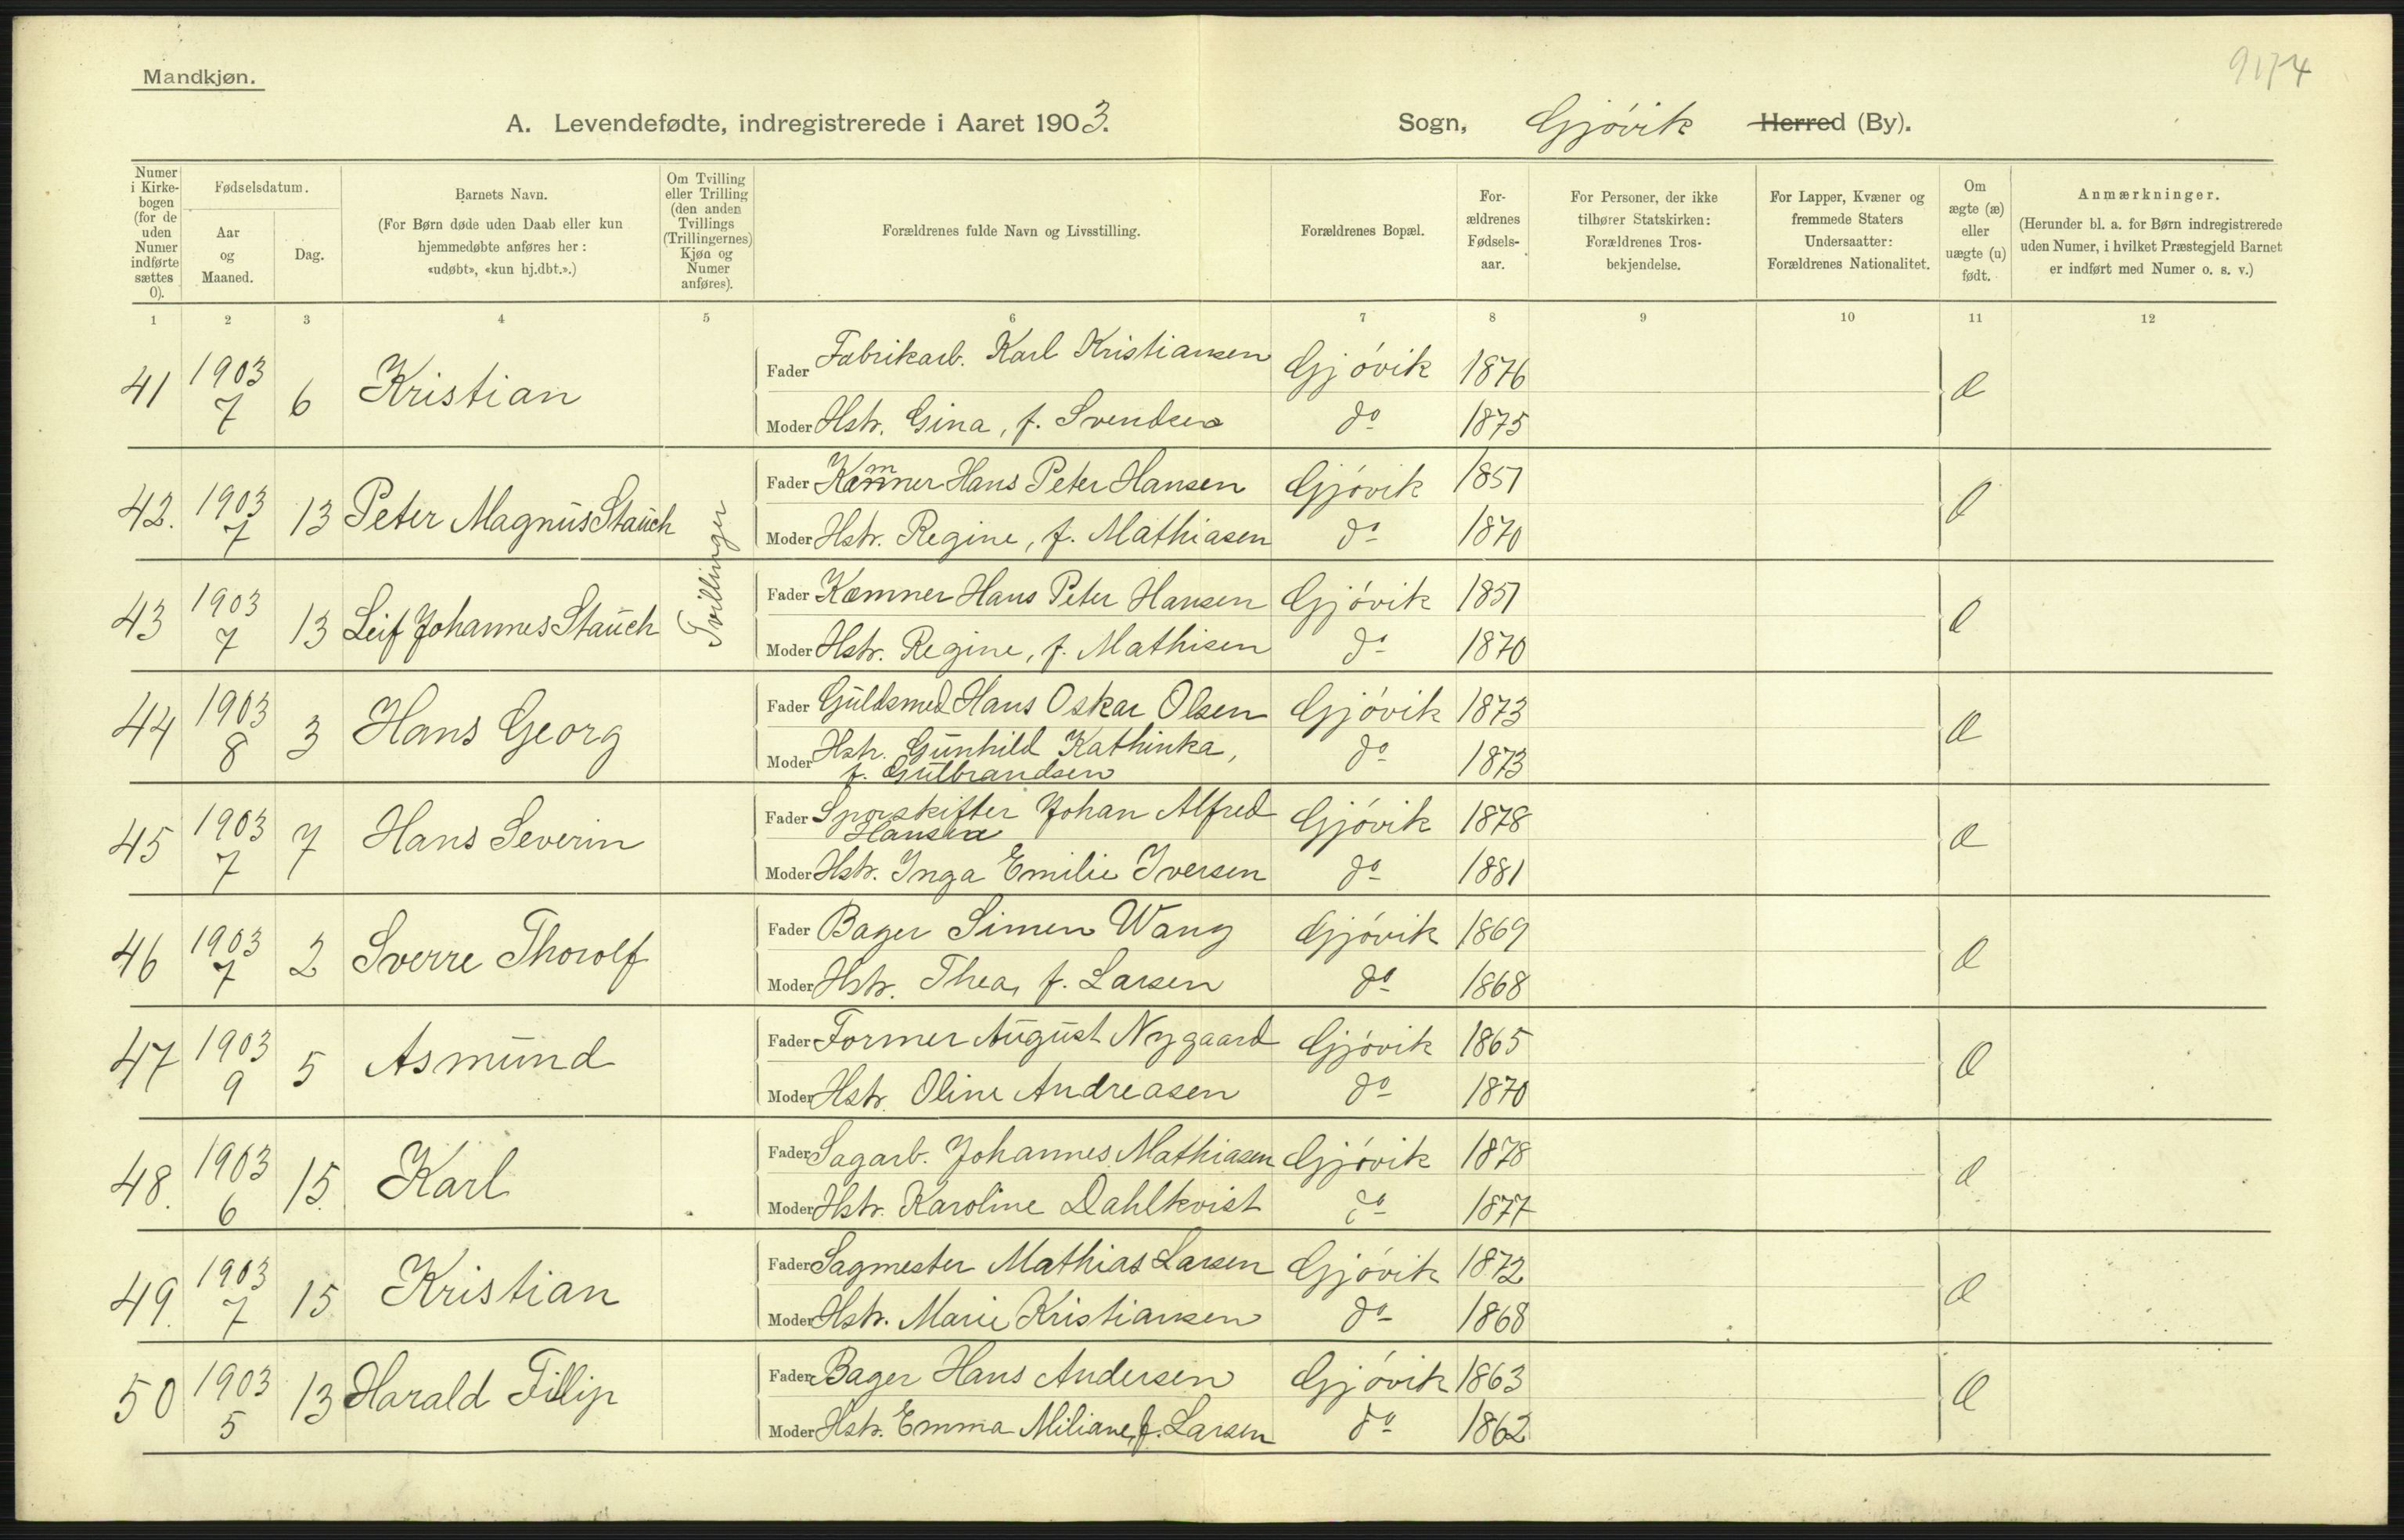 Mandkjøn.
9174
A. Levendefødte, indregistrerede i Aaret 1903. Sogn, Gjövik Herred (By).
Numer i Kirkebogen (for de uden Numer indførte sættes 0).
Fødselsdatum.
Aar og Maaned.
Dag.
Barnets Navn.
(For Børn døde uden Daab eller kun hjemmedøbte anføres her: «udøbt», «kun hj.dbt.».)
Om Tvilling eller Trilling (den anden Tvillings (Trillingernes) Kjøn og Numer anføres).
Forældrenes fulde Navn og Livsstilling.
Forældrenes Bopæl.
Forældrenes Fødselsaar.
For Personer, der ikke tilhører Statskirken: Forældrenes Trosbekjendelse.
For Lapper, Kvæner og fremmede Staters Undersaatter: Forældrenes Nationalitet.
Om ægte (æ) eller uægte (u) født.
Anmærkninger.
(Herunder bl. a. for Børn indregistrerede uden Numer, i hvilket Præstegjeld Barnet er indført med Numer o. s. v.)
1 2 3 4 5 6 7 8 9 10 11 12
41 1903 7 6 Kristian Fader Fabrikarb. Karl Kristiansen Gjövik 1876 Æ
Moder Hstr. Gina, f. Svendsen do 1875
42. 1903 7 13 Peter Magnus Stauch Tvillinger Fader Kæmner Hans Peter Hansen Gjövik 1851 Æ
Moder Hstr. Regine, f. Mathiasen do 1870
43 1903 7 13 Leif Johannes Stauch Fader Kæmner Hans Peter Hansen Gjövik 1851 Æ
Moder Hstr. Regine, f. Mathisen do 1870
44 1903 8 3 Hans Georg Fader Guldsmed Hans Oskar Olsen Gjövik 1873 Æ
Moder Hstr. Gunhild Kathinka, do 1873
f. Gulbrandsen
45 1903 7 7 Hans Severin Fader Sporskifter Johan Alfred Gjövik 1878 Æ
Hansen
Moder Hstr. Inga Emilie Iversen do 1881
46 1903 7 2 Sverre Thorolf Fader Bager Simen Wang Gjövik 1869 Æ
Moder Hstr. Thea, f. Larsen do 1868
47 1903 9 5 Asmund Fader Former August Nygaard Gjövik 1865 Æ
Moder Hstr. Oline Andreasen do 1870
48. 1903 6 15 Karl Fader Sagarb. Johannes Mathiasen Gjövik 1878 Æ
Moder Hstr. Karoline Dahlkvist do 1877
49. 1903 7 15 Kristian Fader Sagmester Mathias Larsen Gjövik 1872 Æ
Moder Hstr. Marie Kristiansen do 1868
50 1903 5 13 Harald Fillip Fader Bager Hans Andersen Gjövik 1863 Æ
Moder Hstr. Emma Miliane, f. Larsen do 1862